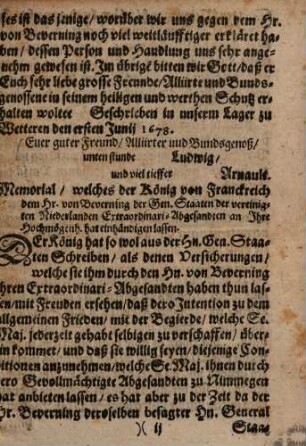 ses ist das jenige / worüber wir uns gegen dem Hr.
von Beverning noch viel weitläufftiger erkläret ha-
ben / dessen Person und Handlung uns sehr ange-
nehm gewesen ist. Im übrigē bitten wir Gott / daß er
Euch sehr liebe grosse Freunde / Alliirte und Bunds-
genossene in seinem heiligen und werthen Schutz er-
halten wolte. Geschrieben in unserm Lager zu
Wetteren den ersten Junii 1678.
/ Euer guter Freund / Alliirter und Bundsgenoß /
unten stunde Ludwig /
und viel tieffer Arnault.
Memorial / welches der König von Franckreich
dem Hr. von Beverning der Gen. Staaten der vereinig-
ten Niederlanden Extraordinari-Abgesandten an Ihre
Hochmögenh. hat einhändigen lassen.
DEr König hat so wol aus der Hn. Gen. Staa-
ten Schreiben / als denen Versicherungen /
welche sie ihm durch den Hn. von Beverning
ihren Extraordinari-Abgesandten haben thun las-
sen / mit Freuden ersehen / daß dero Intention zu dem
allgemeinen Frieden / mit der Begierde / welche Se.
Maj. jederzeit gehabt selbigen zu verschaffen / über-
ein kommet / und daß sie willig seyen / diejenige Con-
ditionen anzunehmen / welche Se. Maj. ihnen durch
dero Gevollmächtigte Abgesandten zu Nimmegen
hat anbieten lassen / es hat aber zu der Zeit da der
Hr. Beverning deroselben besagter Hn. General
)( ij Staa-